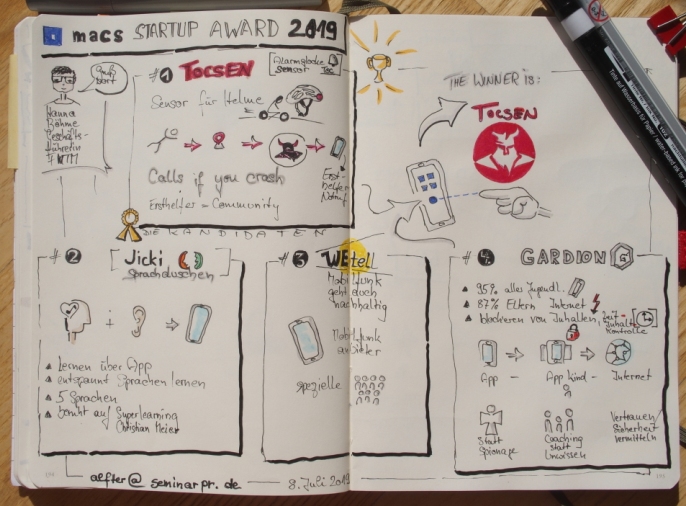 macs STARTUP AWARD 2019
Hanna
Böhme
Geschäfts-
führerin
#1 TOCSEN
Alarmglocke
Sensor Toc
Sensor für Helme
Calls if you crash
Erst-
helfer
Notruf
Ersthelfer - Community
DIE KANDIDATEN
THE WINNER IS:
TOCSEN
#2 Jicki
Sprachduschen
+
Lernen über App
entspannt Sprachen lernen
5 Sprachen
beruht auf Superlearning
Christian Meier
#3 WEtell
Mobilfunk
geht auch
nachhaltig
Mobilfunk
anbieter
spezielle
#4 GARDION G
95% aller Jugendl.
87% Eltern Internet
blockieren von Inhalten,
Zeit-
Inhalte
Kontrolle
App - App Kind - Internet
Statt
Spionage
Coaching
statt
Unwissen
Vertrauen
Sicherheit
vermitteln
aelfter@seminarpr.de
8. Juli 2019